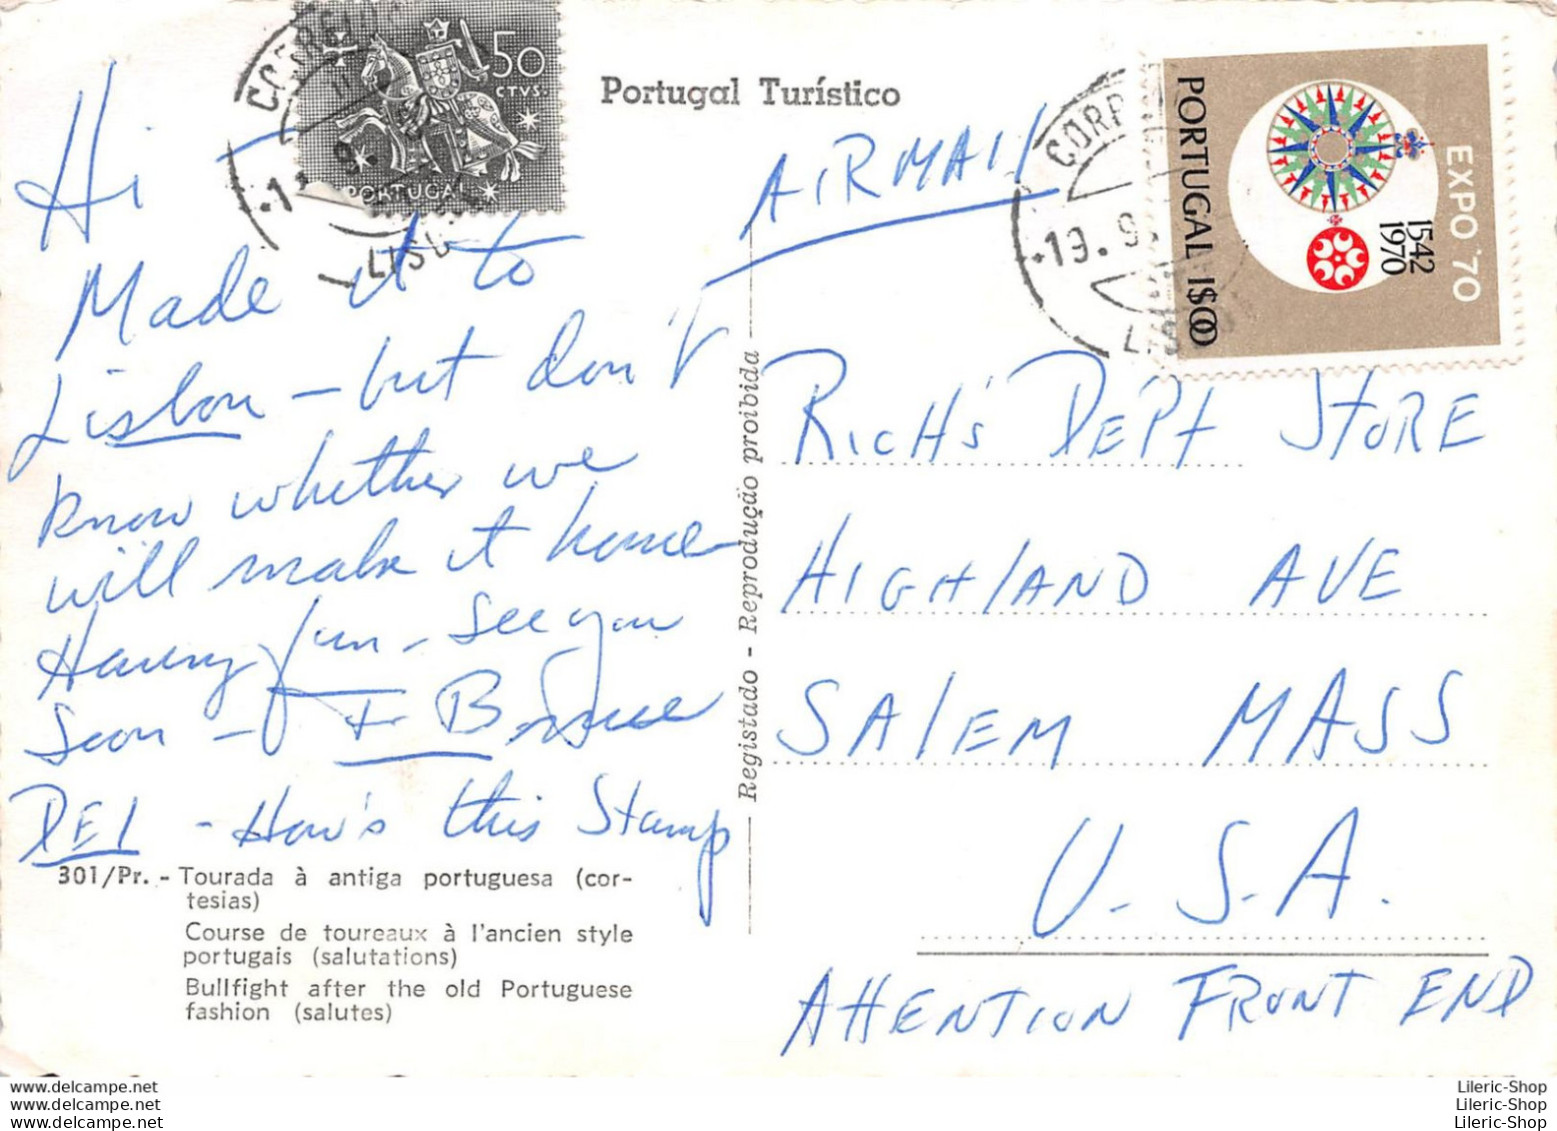 Portugal Turístico
CORREIOS
50
CTVS.
PORTUGAL
LISBOA
PORTUGAL 1$00
1542
1970
EXPO '70
19. 9.
Hi -
Made it to
Lisbon - but don't
know whether we
will make it home
Having fun - see you
Soon -
DEL - How's this Stamp
AIRMAIL
RICH'S DEPT STORE
HIGHLAND AVE
SALEM MASS
U.S.A.
ATTENTION FRONT END
Registado - Reprodução proibida
301/Pr. - Tourada à antiga portuguesa (cor-
tesias)
Course de toureaux à l'ancien style
portugais (salutations)
Bullfight after the old Portuguese
fashion (salutes)
www.delcampe.net
www.delcampe.net
www.delcampe.net
Lileric-Shop
Lileric-Shop
Lileric-Shop